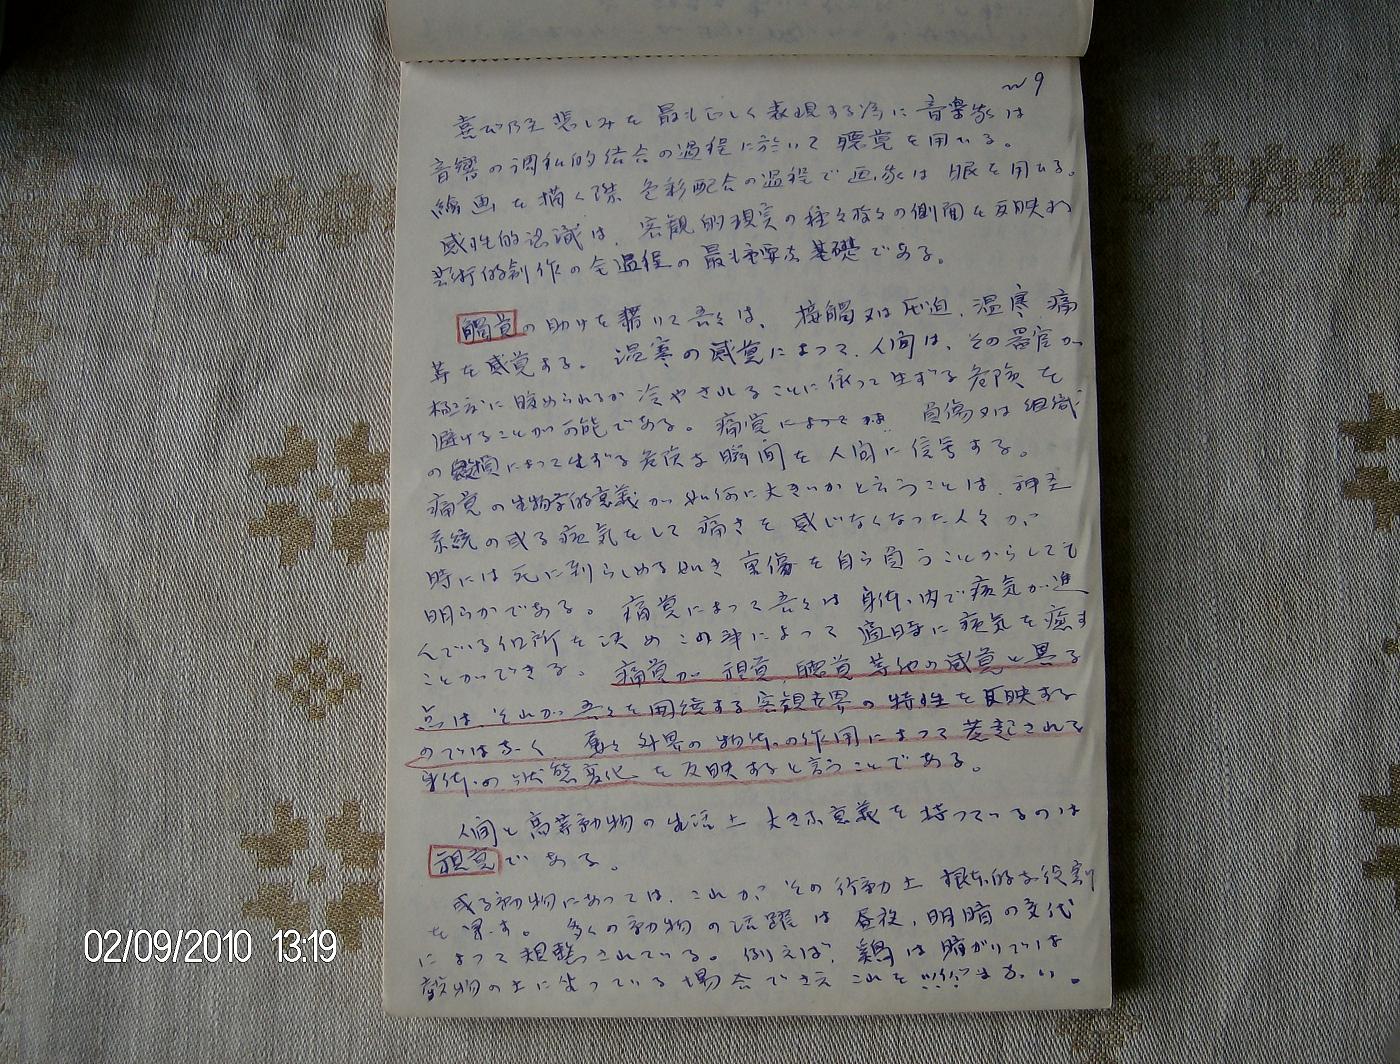 9
喜び乃至悲しみを最も正しく表現する為に音楽家は
音響の調和的結合の過程に於いて聴覚を用ひる。
絵画を描く際色彩配合の過程で画家は眼を用ひる。
感性的認識は、客観的現実の種々様々の側面を反映す
芸術的創作の全過程の最も重要な基礎である。
觸覚の助けを藉りて吾々は、接觸又は圧迫、温寒、痛
等を感覚する。温寒の感覚によって、人间は、その器官が
極主に暖められるか冷やされることに依って生ずる危険を
避けることが可能である。痛覚によって 負傷又は組織
の毀損によって生ずる危険な瞬间を人间に信号する。
痛覚の生物学的意義が如何に大きいかと言うことは、神圣
系統の或る病気をして痛さを感じなくなった人々が、
時には死に到らしめる如き重傷を自ら負うことからしても
明らかである。痛覚によって吾々は身体内で病気が進
んでいる個所を決めこの事によって適時に病気を癒す
ことができる。痛覚が視覚、聴覚等他の感覚と異る
点は、それが吾々を囲繞する客観世界の特性を反映する
のではなく、夏々外界の物体の作用によって惹起される
身体の状態変化を反映すると言うことである。
人间と高等動物の生活上大きな意義を持っているのは
視覚である。
或る動物にあっては、これが、その行動上根本的な役割
を果す。多くの動物の活躍は昼夜、明暗の交代
によって規整されている。例えば、鶏は暗がりでは
穀物の上に坐っている場合でさえこれを ない。
02/09/2010 13:19